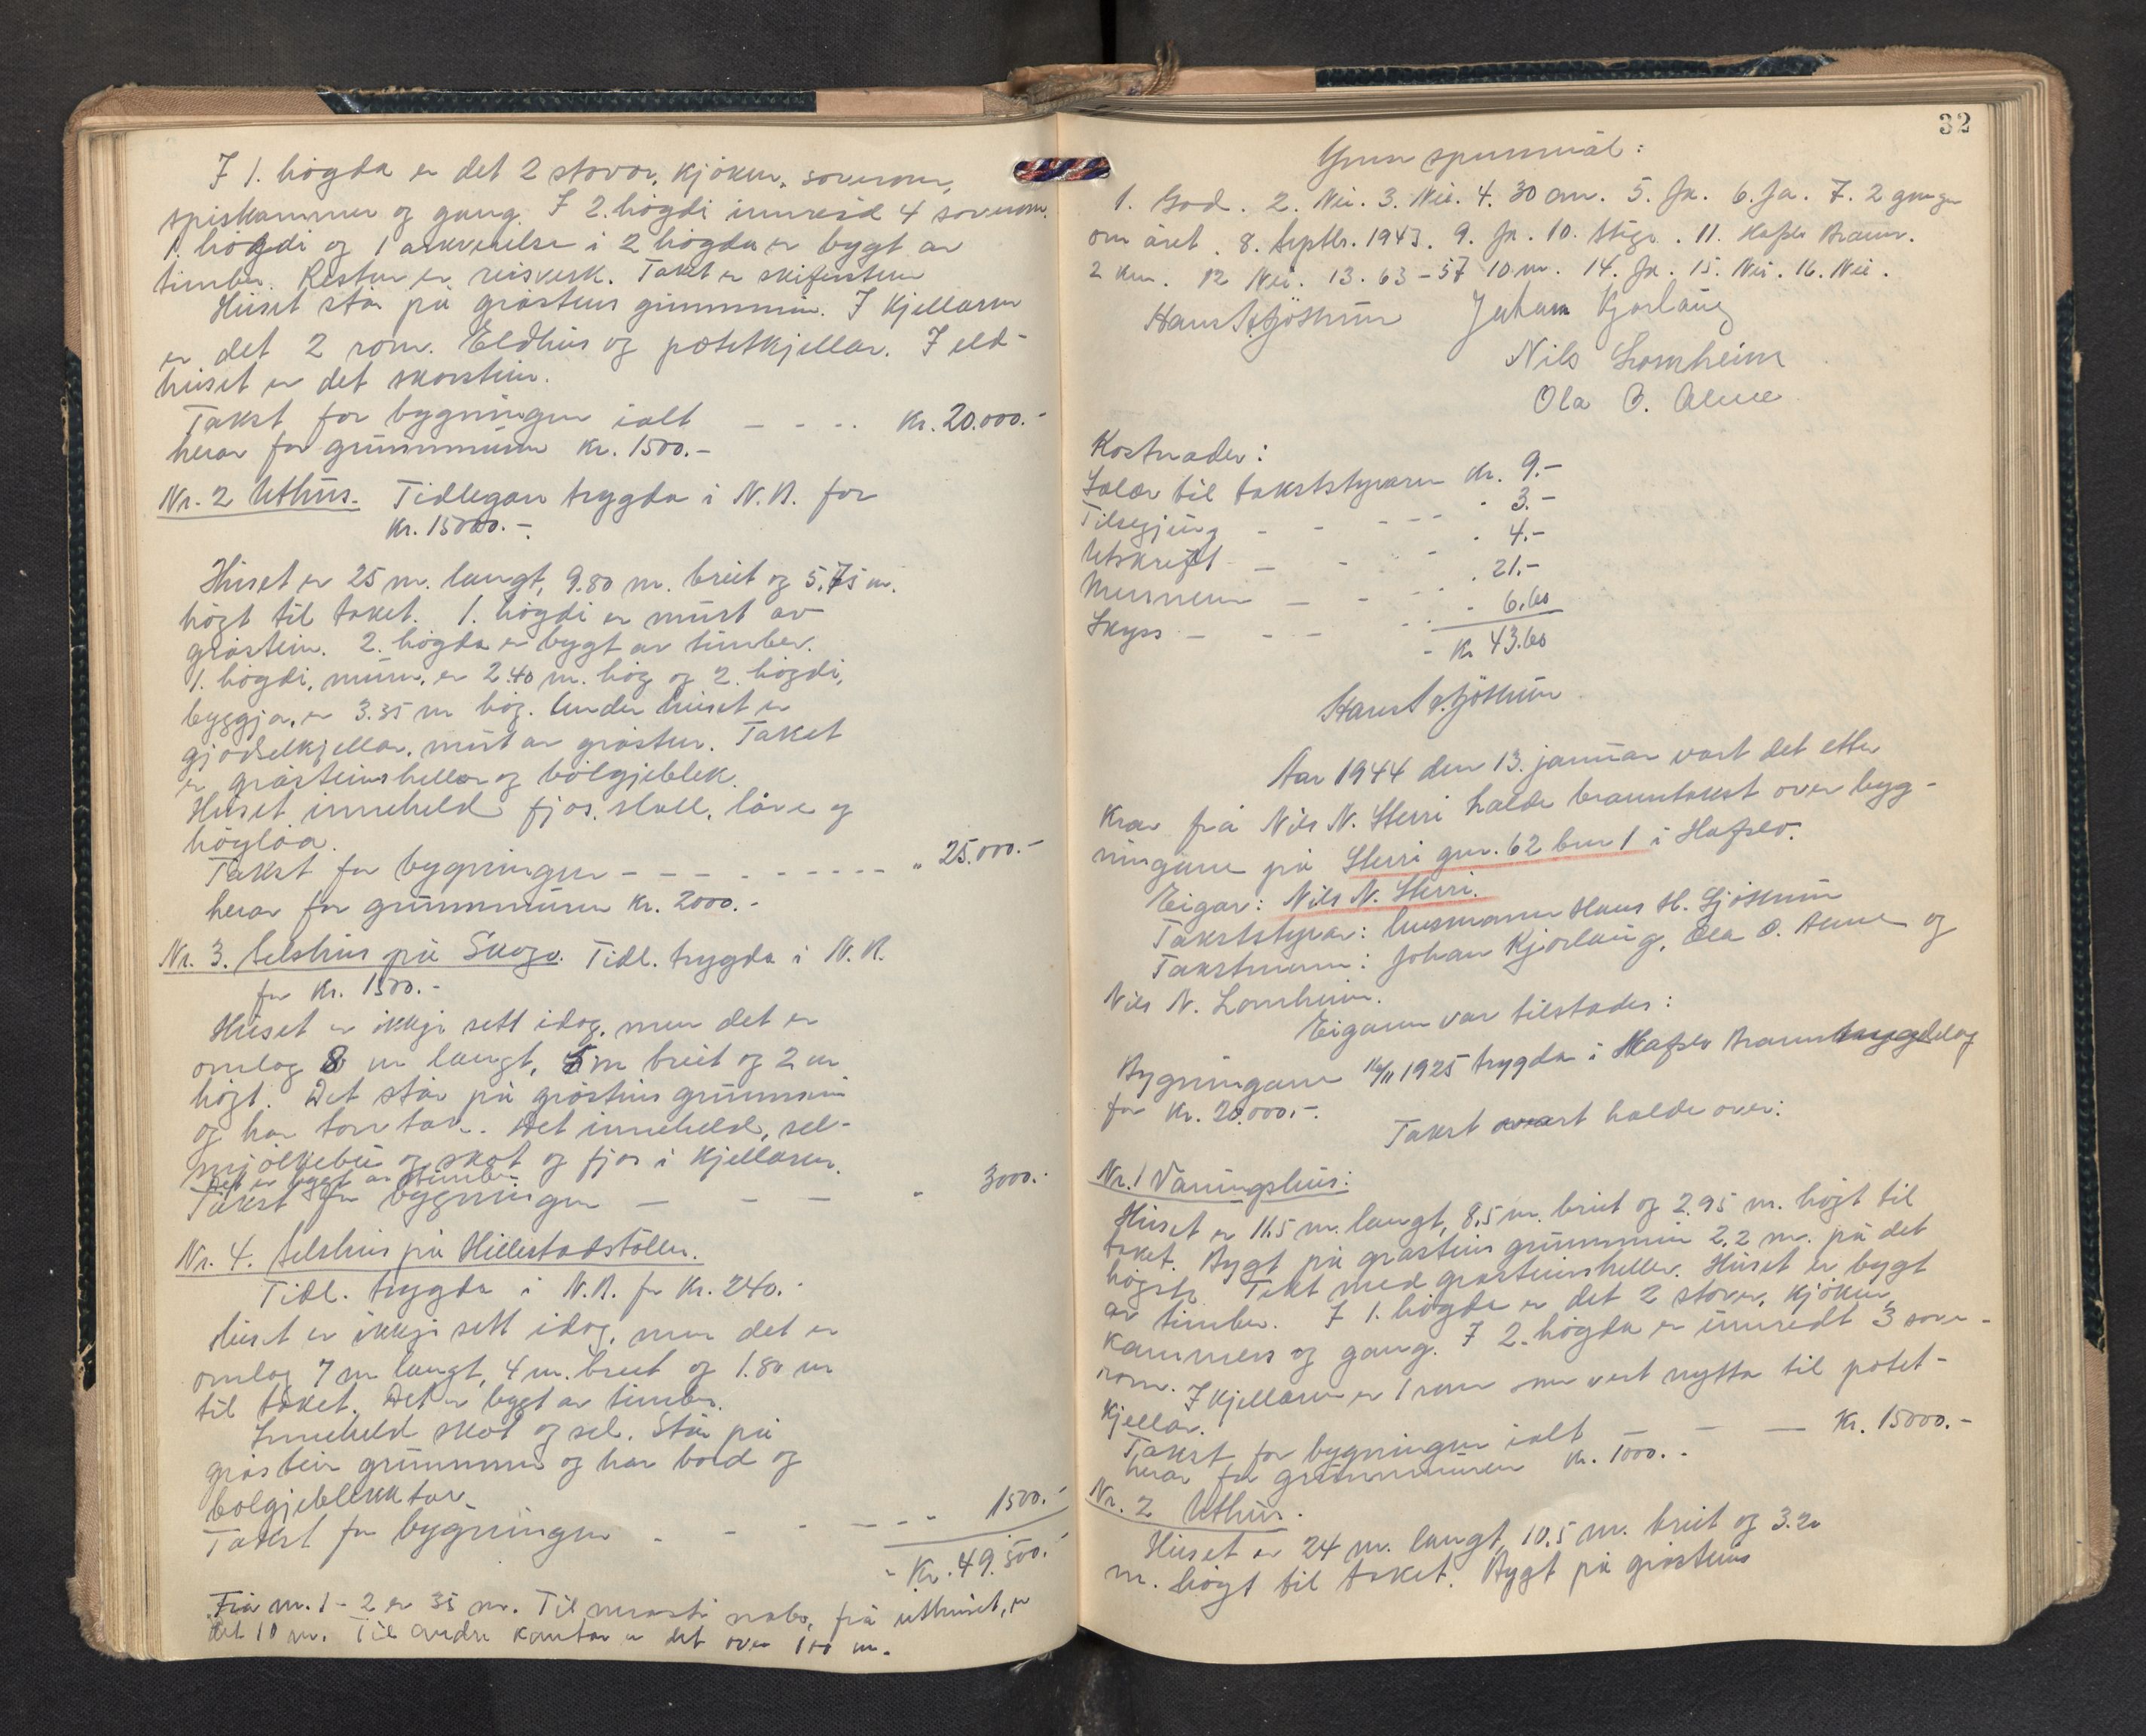 I 1. høgda er det 2 stovor, kjøken, soverom,
spiskammer og gang. I 2. høgdi innreid 4 soverom.
1. høgdi og 1 arkverelse i 2 høgda er bygt av
timber. Resten er reisverk. Taket er skiferstein
Huset står på gråsteins grunnmur. I kjellaren
er det 2 rom. Eldhus og potetkjellar. I eld-
huset er det skorstein.
Takst for bygningen ialt – – . . kr. 20.000.-
herav for grunnmuren kr. 1500.-
Nr. 2 Uthus. Tidlegare trygda i N. B. for
kr. 15000.-
Huset er 25 m. langt, 9.80 m. breit og 5.75 m.
høgt til taket. 1. høgdi er murt av
gråstein. 2. høgda er bygt av timber.
1. høgdi, muren, er 2.40 m. høg og 2. høgdi,
byggja, er 3.35 m høg. Under huset er
gjødselkjellar, murt av gråstein. Taket
er gråsteinsheller og bølgjeblek.
Huset inneheld fjos, stall, låve og
høyløa.
Takst for bygningen – – – – – – – – – " 25.000.-
herav for grunnmuren kr. 2000.-
Nr. 3. Selshus på Skogo. Tidl. trygda i N. B.
for kr. 1500.-
Huset er ikkje sett idag, men det er
omlag 8 m langt, 5 m breit og 2 m
høgt. Det står på gråsteins grunnmur
og har torvtak. Det inneheld, sel-
mjølkebu og skot og fjos i kjellaren.
Det er bygt av timber
Takst for bygningen – – – " 3000.-
Nr. 4. Selshus på Hillestadstølen.
Tidl. trygda i N. B. for kr. 240.-
Huset er ikkje sett idag, men det er
omlag 7 m langt, 4 m. breit og 1.80 m
til taket. Det er bygt av timber.
Inneheld skot og sel. Står på
gråstein grunnmur og har bord og
bølgjeblekktak.
Takst for bygningen . - - – – - " 1500.-
- Kr. 49.500.-
Frå nr. 1 - 2 er 35 m. Til næraste nabo, frå uthuset, er
det 10 m. Til andre kantar er det over 100 m.
32
Ymse spursmål:
1. God. 2. Nei. 3. Nei. 4. 30 cm. 5. Ja. 6. Ja. 7. 2 gonger
om året. 8. Septbr. 1943. 9. Ja. 10. Stige. 11. Hafslo Brannv.
2 km. 12 Nei. 13. 63 - 57 10 m. 14. Ja. 15. Nei. 16. Nei.
Hans H. Sjøthun Johan Kjørlaug
Nils Lomheim
Ola O. Alme
Kostnader:
Salær til takststyraren kr. 9.-
Tilsegjing - - - – – " 3.-
Utskrift – - - " 4.-
Mennene – - - . 21.-
Skyss – - – - - 6.60
- Kr 43.60
Hans H. Sjøthun
Aar 1944 den 13. januar vart det etter
krav frå Nils N. Sterri halde branntakst over byg-
ningane på Sterri gnr. 62 bnr 1 i Hafslo.
Eigar: Nils N. Sterri.
Takststyrar: lensmann Hans H. Sjøthun
Takstmenn: Johan Kjørlaug, Ola O. Alme og
Nils N. Lomheim.
Eigaren var tilstades:
Bygningane 16/11 1925 trygda i Hafslo Branntrygdelag
for kr. 20.000.-
Takst vart halde over:
Nr. 1 Våningshus:
Huset er 11.5 m. langt, 8.5 m. breit og 2.95 m. høgt til
taket. Bygt på gråsteins grunnmur 2.2 m. på det
høgste. Tekt med gråsteinsheller. Huset er bygt
av timber. I 1. høgda er det 2 stover, kjøken,
kammers og gang. I 2. høgda er innredt 3 sove-
rom. I kjellaren er 1 rom som vert nytta til potet-
kjellar.
Takst for bygningen ialt – — Kr. 15000.-
herav for grunnmuren kr. 1000.-
Nr. 2 Uthus.
Huset er 24 m. langt, 10.5 m. breit og 3.20
m. høgt til taket. Bygt på gråsteins